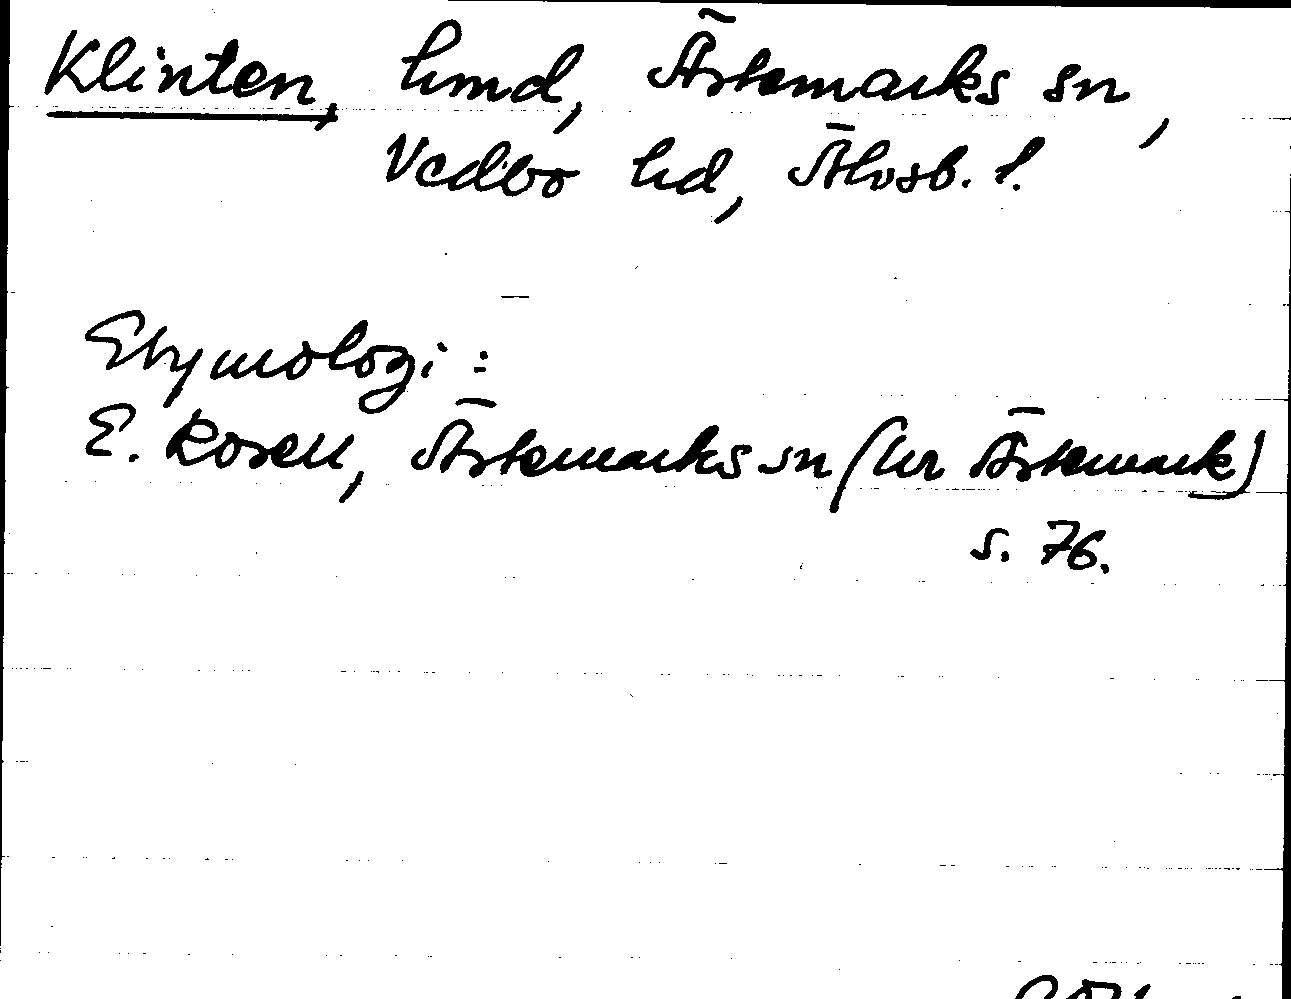 Klinten, hmd, Ärtemarks sn,
Vedbo hd, Älvsb. l.
Etymologi:
E. Rosell, Ärtemarks sn (ur Ärtemark)
s. 76.